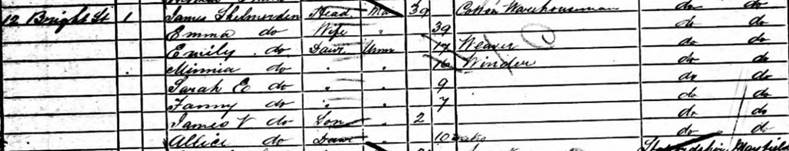 12 Bright St 1 James Shelmerden Head Mar 39 Cotton Warehouseman do do
Emma do Wife " 39 do do
Emily do Daur Unm 17 Weaver do do
Minnia do " " 16 Winder do do
Sarah E do " " 9 do do
Fanny do " " 7 do do
James do Son " 2 do do
Allice do Daur 10 do do